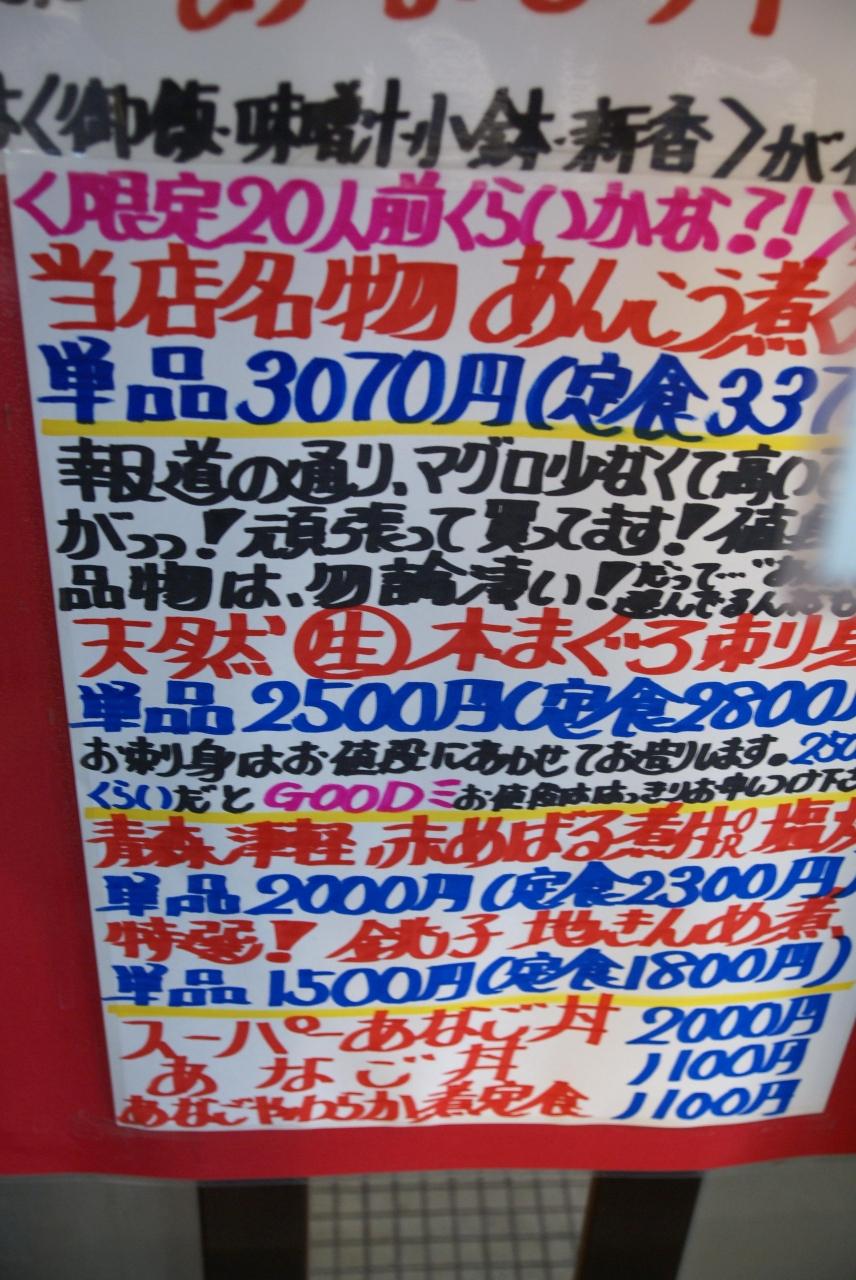 く〈御飯・味噌汁・小鉢・新香〉が
〈限定20人前くらいかな?!〉
当店名物 あんこう煮
単品3070円(定食337
報道の通り、マグロ少なくて高い
がっっ!頑張って買ってます!値
品物は、勿論凄い!だって…"あ
選んでるん
天然㊗生本まぐろ刺り身
単品2500円(定食2800
お刺り身はお値段にあわせてお造りします。250
くらいだとGOODミお値段ははっきりお申しつけ下さ
青森津軽、赤めばる煮付OR塩
単品2000円(定食2300円)
特選!銚子 地きんめ煮
単品1500円(定食1800円)
スーパーあなご丼 2000円
あなご丼 1100円
あなごやわらか煮定食 1100円